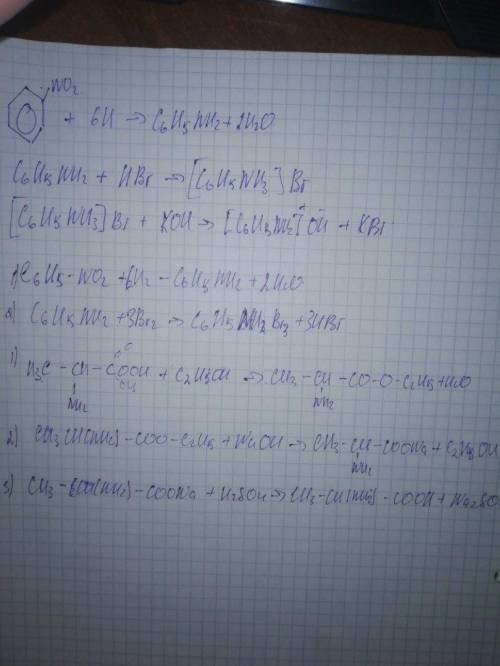 NO₂
+ 6H → C₆H₅NH₂ + 2H₂O
C₆H₅NH₂ + HBr → [C₆H₅NH₃]Br
[C₆H₅NH₃]Br + KOH → [C₆H₅NH₃]⁺OH⁻ + KBr
1) C₆H₅-NO₂ + 6H₂ - C₆H₅NH₂ + 2H₂O
2) C₆H₅NH₂ + 3Br₂ → C₆H₅NH₂Br₃ + 3HBr
1) H₃C - CH - COOH + C₂H₅OH → CH₃ - CH - CO - O - C₂H₅ + H₂O
NH₂ NH₂
2) CH₃CH(NH₂) - COO - C₂H₅ + NaOH → CH₃ - CH - COONa + C₂H₅OH
NH₂
3) CH₃ - CH(NH₂) - COONa + H₂SO₄ → CH₃ - CH(NH₂) - COOH + Na₂SO